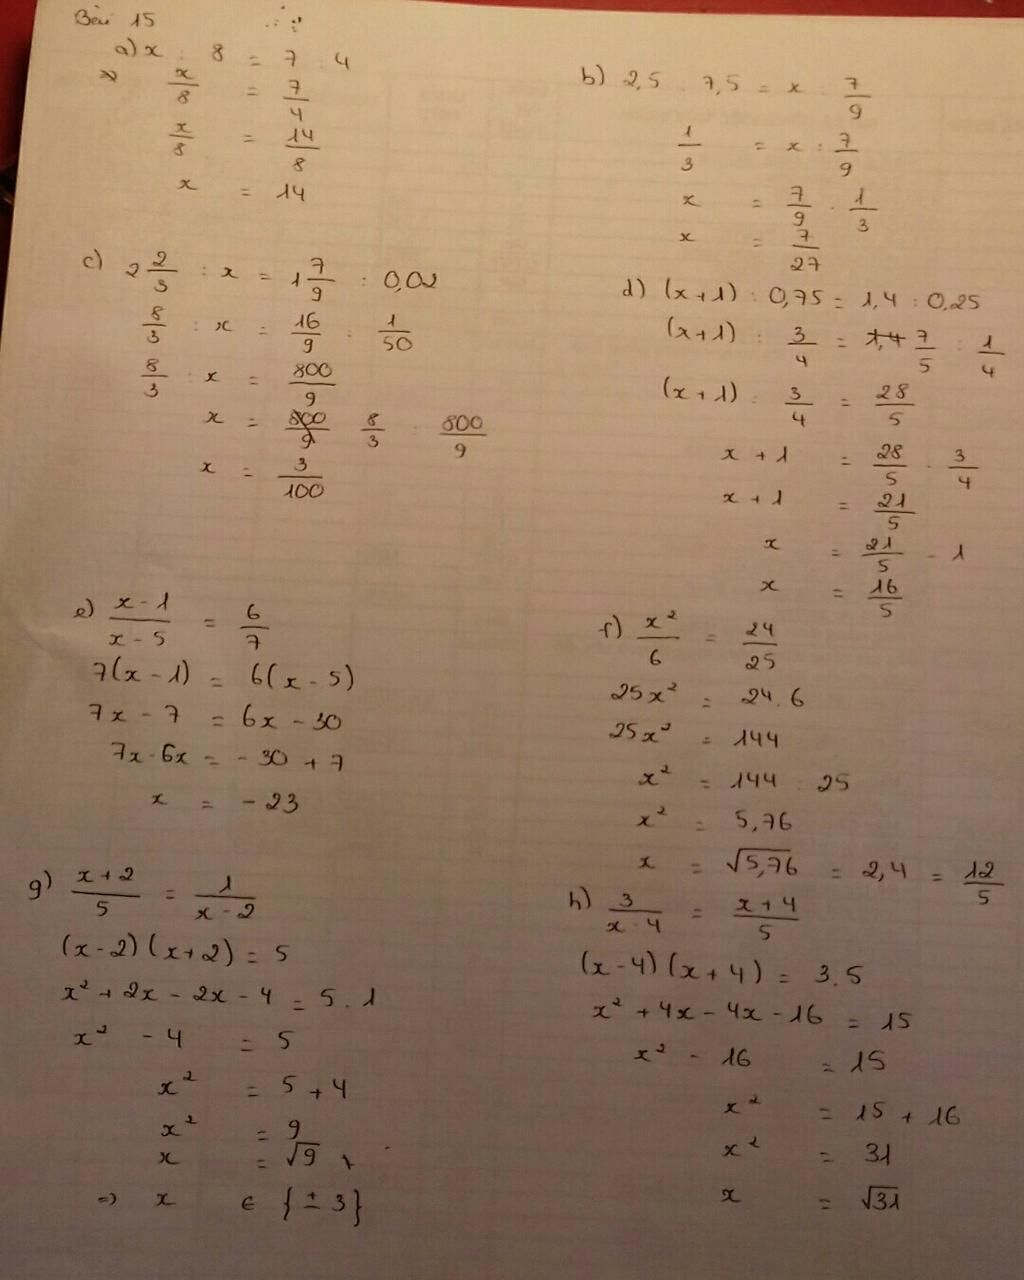 Bài 15
a) x : 8 = 7 : 4
=> x/8 = 7/4
x/8 = 14/8
x = 14
b) 2,5 : 7,5 = x : 7/9
1/3 = x : 7/9
x = 7/9 . 1/3
x = 7/27
c) 2 2/3 : x = 1 7/9 : 0,02
8/3 : x = 16/9 : 1/50
8/3 : x = 800/9
x = 8/3 : 800/9
x = 3/100
d) (x+1) : 0,75 = 1,4 : 0,25
(x+1) : 3/4 = 7/5 : 1/4
(x+1) : 3/4 = 28/5
x + 1 = 28/5 . 3/4
x + 1 = 21/5
x = 21/5 - 1
x = 16/5
e) x-1/x-5 = 6/7
7(x-1) = 6(x-5)
7x - 7 = 6x - 30
7x-6x = -30 + 7
x = -23
f) x²/6 = 24/25
25x² = 24.6
25x² = 144
x² = 144 : 25
x² = 5,76
x = √5,76 = 2,4 = 12/5
g) x+2/5 = 1/x-2
(x-2)(x+2) = 5
x² + 2x - 2x - 4 = 5.1
x² - 4 = 5
x² = 5+4
x² = 9
x = √9
=> x ∈ {±3}
h) 3/x-4 = x+4/5
(x-4)(x+4) = 3.5
x² + 4x - 4x - 16 = 15
x² - 16 = 15
x² = 15 + 16
x² = 31
x = √31